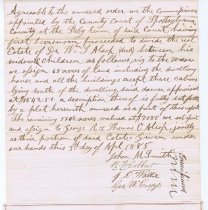 Agreeable to the annexed order we the Commissioners
appointed by the County Court of Spottsylvania
County at the Feby term of said Court, having
first been sworn, proceeded to divide the real
Estate of Dr. W. J. Alsop decd between his
widow & children, as follows, viz to the widow
we assign 65 acres of land including the dwelling
house and all the buildings except three cabins
lying south of the dwelling said dower appraised
at $842.50, a description thereof is fully set forth
by a plat herewith annexed as a part of this report.
The remaining 170 acres valued at $2085 we set
apart and assign to George and Thomas E. Alsop jointly
as their portion of said Estate. Given under
our hands this 9th day of Apl. 1885
John M. Smith
J. E. Waller
Geo. W. Trigg